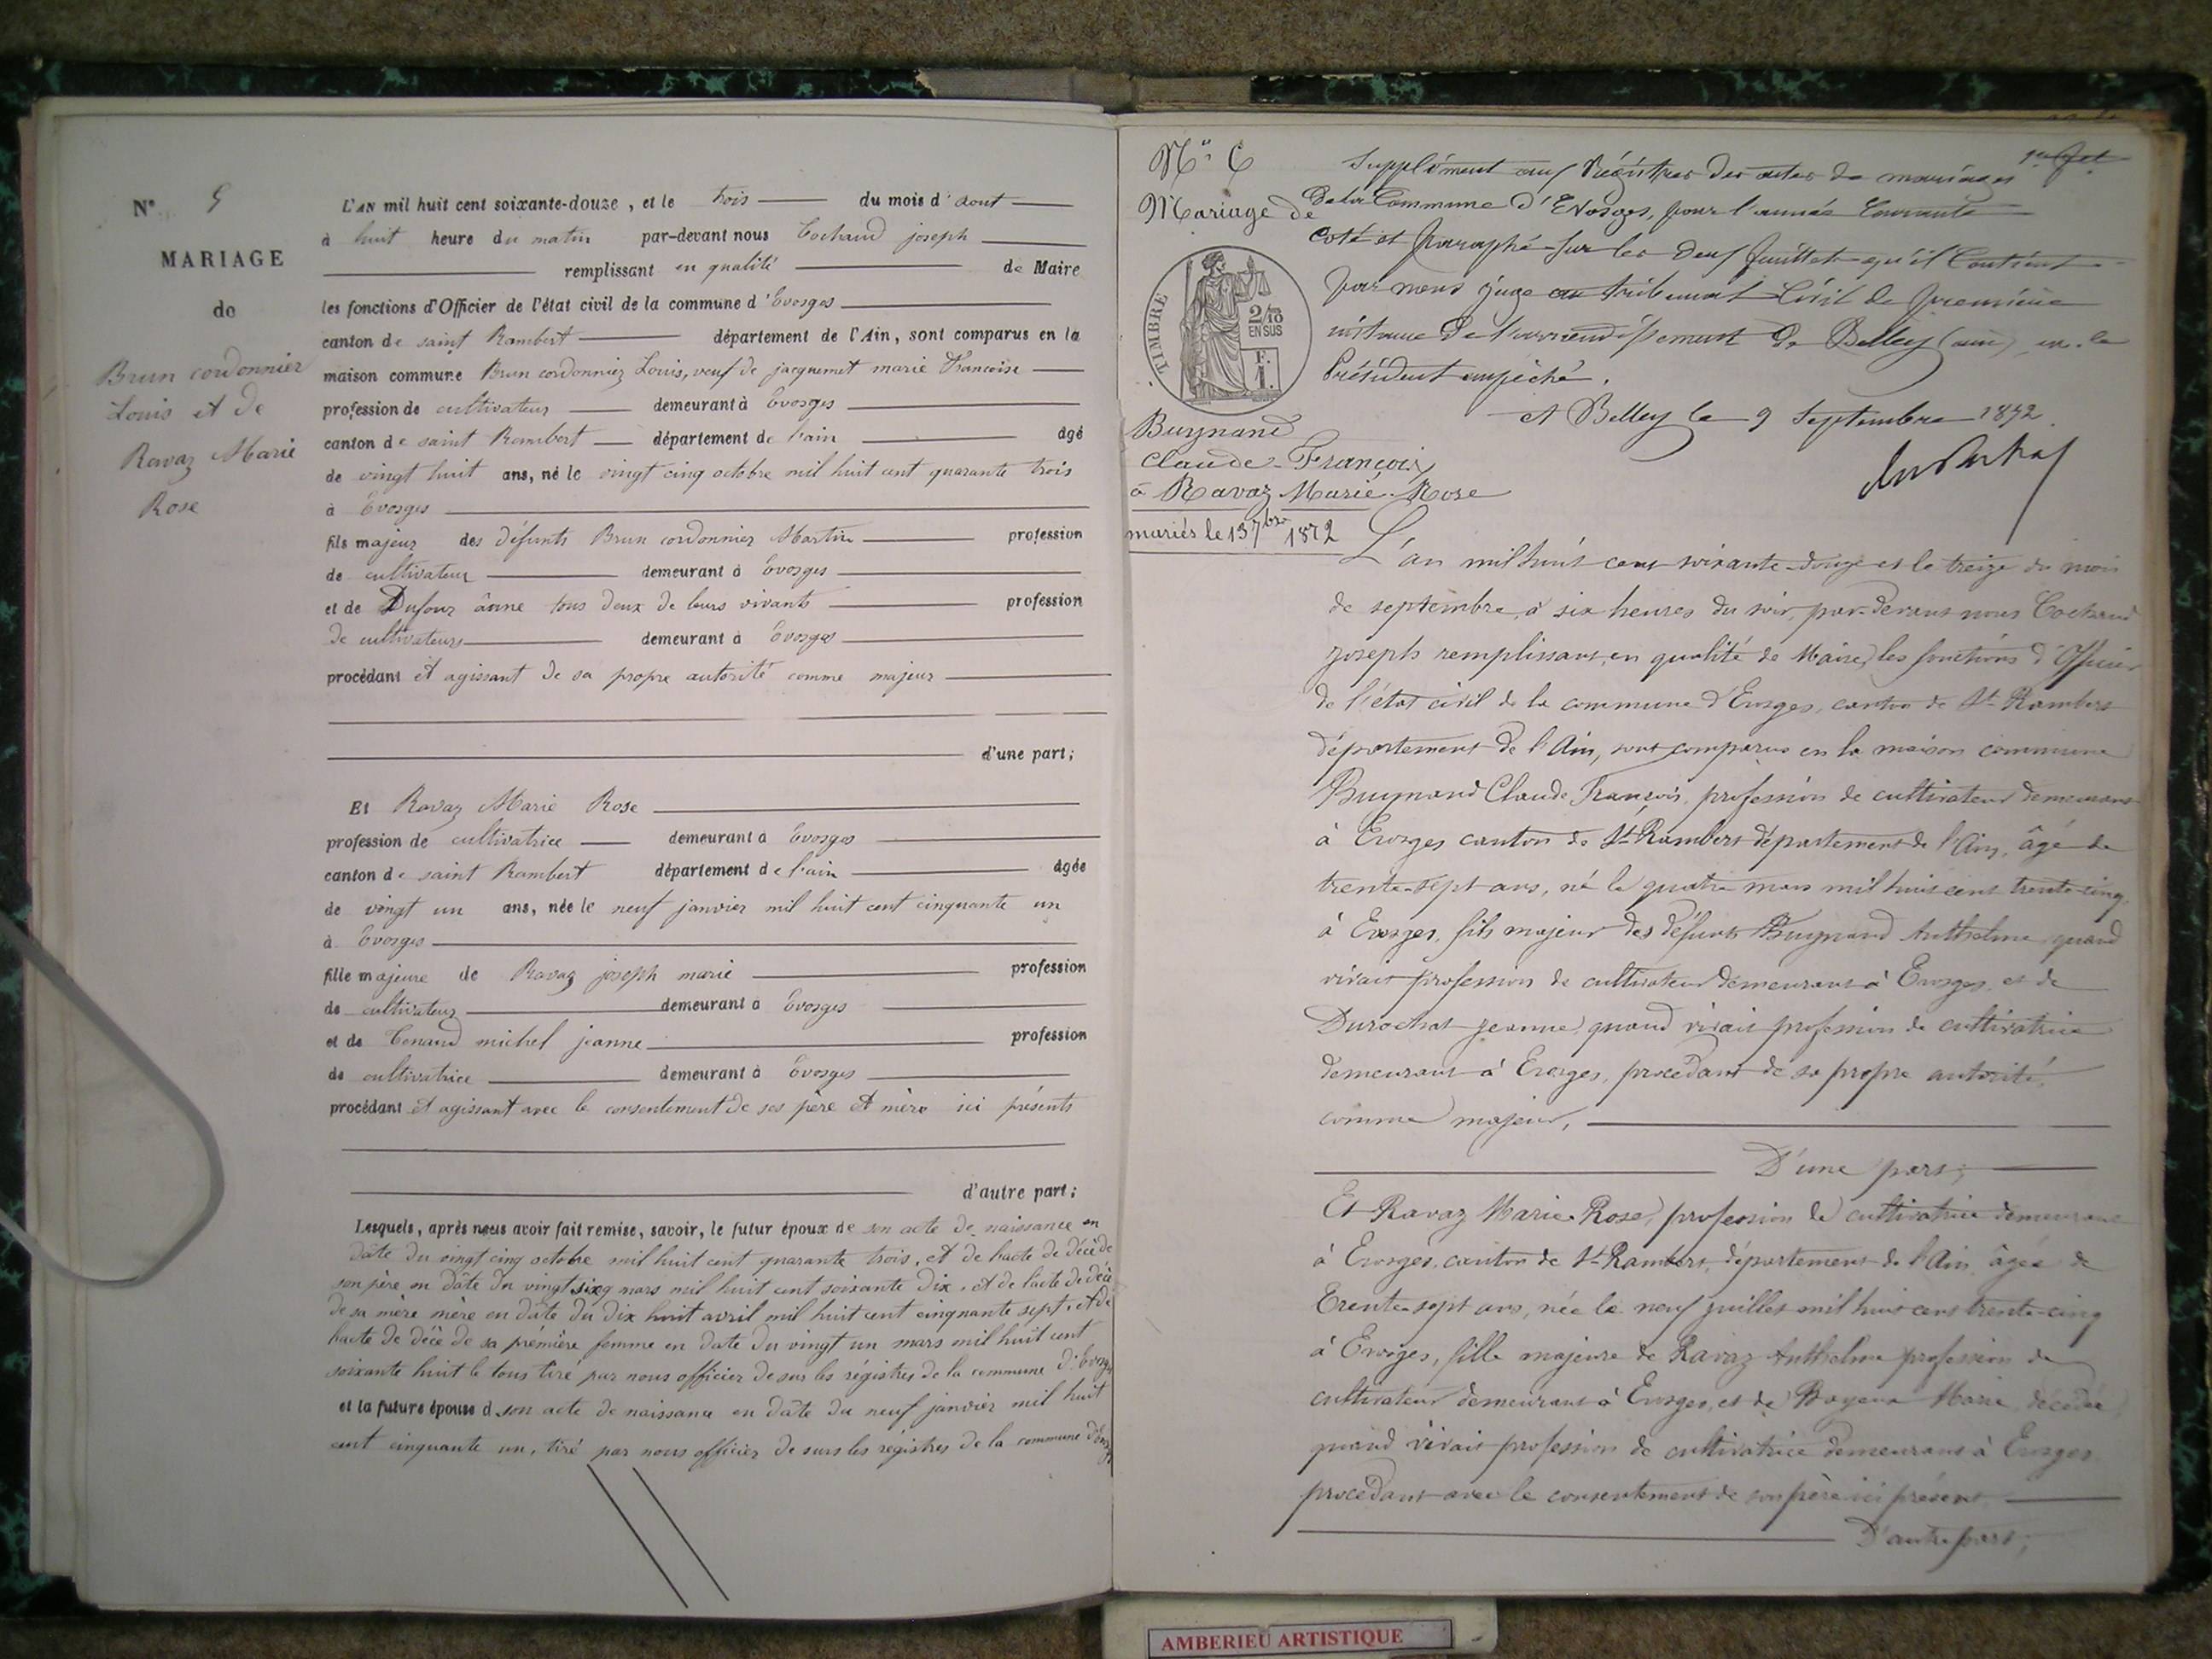 N° 5
MARIAGE
de
Brun cordonnier
Louis et de
Ravaz Marie
Rose
L'AN mil huit cent soixante-douze, et le trois du mois d'aout
à huit heure du matin par-devant nous Cochaud joseph
remplissant en qualité de Maire
les fonctions d'Officier de l'état civil de la commune d'Evosges
canton de saint Rambert département de l'Ain, sont comparus en la
maison commune Brun cordonnier Louis, veuf de jacquemet marie Francoise
profession de cultivateur demeurant à Evosges
canton de saint Rambert département de l'ain âgé
de vingt huit ans, né le vingt cinq octobre mil huit cent quarante trois
à Evosges
fils majeur des défunts Brun cordonnier Martin profession
de cultivateur demeurant à Evosges
et de Dufour ânne tous deux de leurs vivants profession
de cultivateurs demeurant à Evosges
procédant et agissant de sa propre autorité comme majeur
d'une part;
Et Ravaz Marie Rose
profession de cultivatrice demeurant à Evosges
canton de saint Rambert département de l'ain âgée
de vingt un ans, née le neuf janvier mil huit cent cinquante un
à Evosges
fille majeure de Ravaz joseph marie profession
de cultivateur demeurant à Evosges
et de Tenand michel jeanne profession
de cultivatrice demeurant à Evosges
procédant et agissant avec le consentement de ses père et mère ici présents
d'autre part;
Lesquels, après nous avoir fait remise, savoir, le futur époux de son acte de naissance en
date du vingt cinq octobre mil huit cent quarante trois, et de l'acte de décè de
son père en dâte du vingt six mars mil huit cent soixante dix, et de l'acte de décè
de sa mère mère en dâte du dix huit avril mil huit cent cinquante sept, et de
l'acte de décè de sa première femme en date du vingt un mars mil huit cent
soixante huit le tous tiré par nous officier de sur les régistres de la commune d'Evosges
et la future épouse d son acte de naissance en dâte du neuf janvier mil huit
cent cinquante un, tiré par nous officier de surs les régistres de la commune d'Evosges
N° 6
Mariage de
TIMBRE
2/10
EN SUS
F.
1.
Buynand
Claude-François
à Ravaz Marie-Rose
mariés le 13 7bre 1872
Supplément aux Régistres des actes de mariages
de la Commune d'Evosges, pour l'année Courante
coté et paraphé sur les deux feuillets qu'il Contient
par nous juge au tribunal Civil de première
instance de l'arrondissement de Belley (ain), en. le
Président empêché.
A Belley le 9 Septembre 1872.
L'an mil huit cent soixante-douze et le treize du mois
de septembre, à six heures du soir, par-devant nous Cochaud
Joseph remplissant, en qualité de Maire, les fonctions d'Officier
de l'état civil de la commune d'Evosges, canton de St Rambert
département de l'Ain, sont comparus en la maison commune
Buynand Claude François, profession de cultivateur demeurant
à Evosges canton de St-Rambert département de l'Ain, âgé de
trente-sept ans, né le quatre mars mil huit cent trente-cinq,
à Evosges, fils majeur des défunts Buynand Anthelme quand
vivait profession de cultivateur demeurant à Evosges, et de
Durochat Jeanne, quand vivait profession de cultivatrice
demeurant à Evosges, procédant de sa propre autorité,
comme majeur,
D'une part;
Et Ravaz Marie-Rose, profession de cultivatrice demeurant
à Evosges, canton de St-Rambert, département de l'Ain, âgée de
Trente-sept ans, née le neuf juillet mil huit cent trente-cinq
à Evosges, fille majeure de Ravaz Anthelme profession de
cultivateur demeurant à Evosges, et de Marie, décédée
quand vivait profession de cultivatrice demeurant à Evosges
procédant avec le consentement de son père ici présent
D'autre part;
AMBERIEU ARTISTIQUE